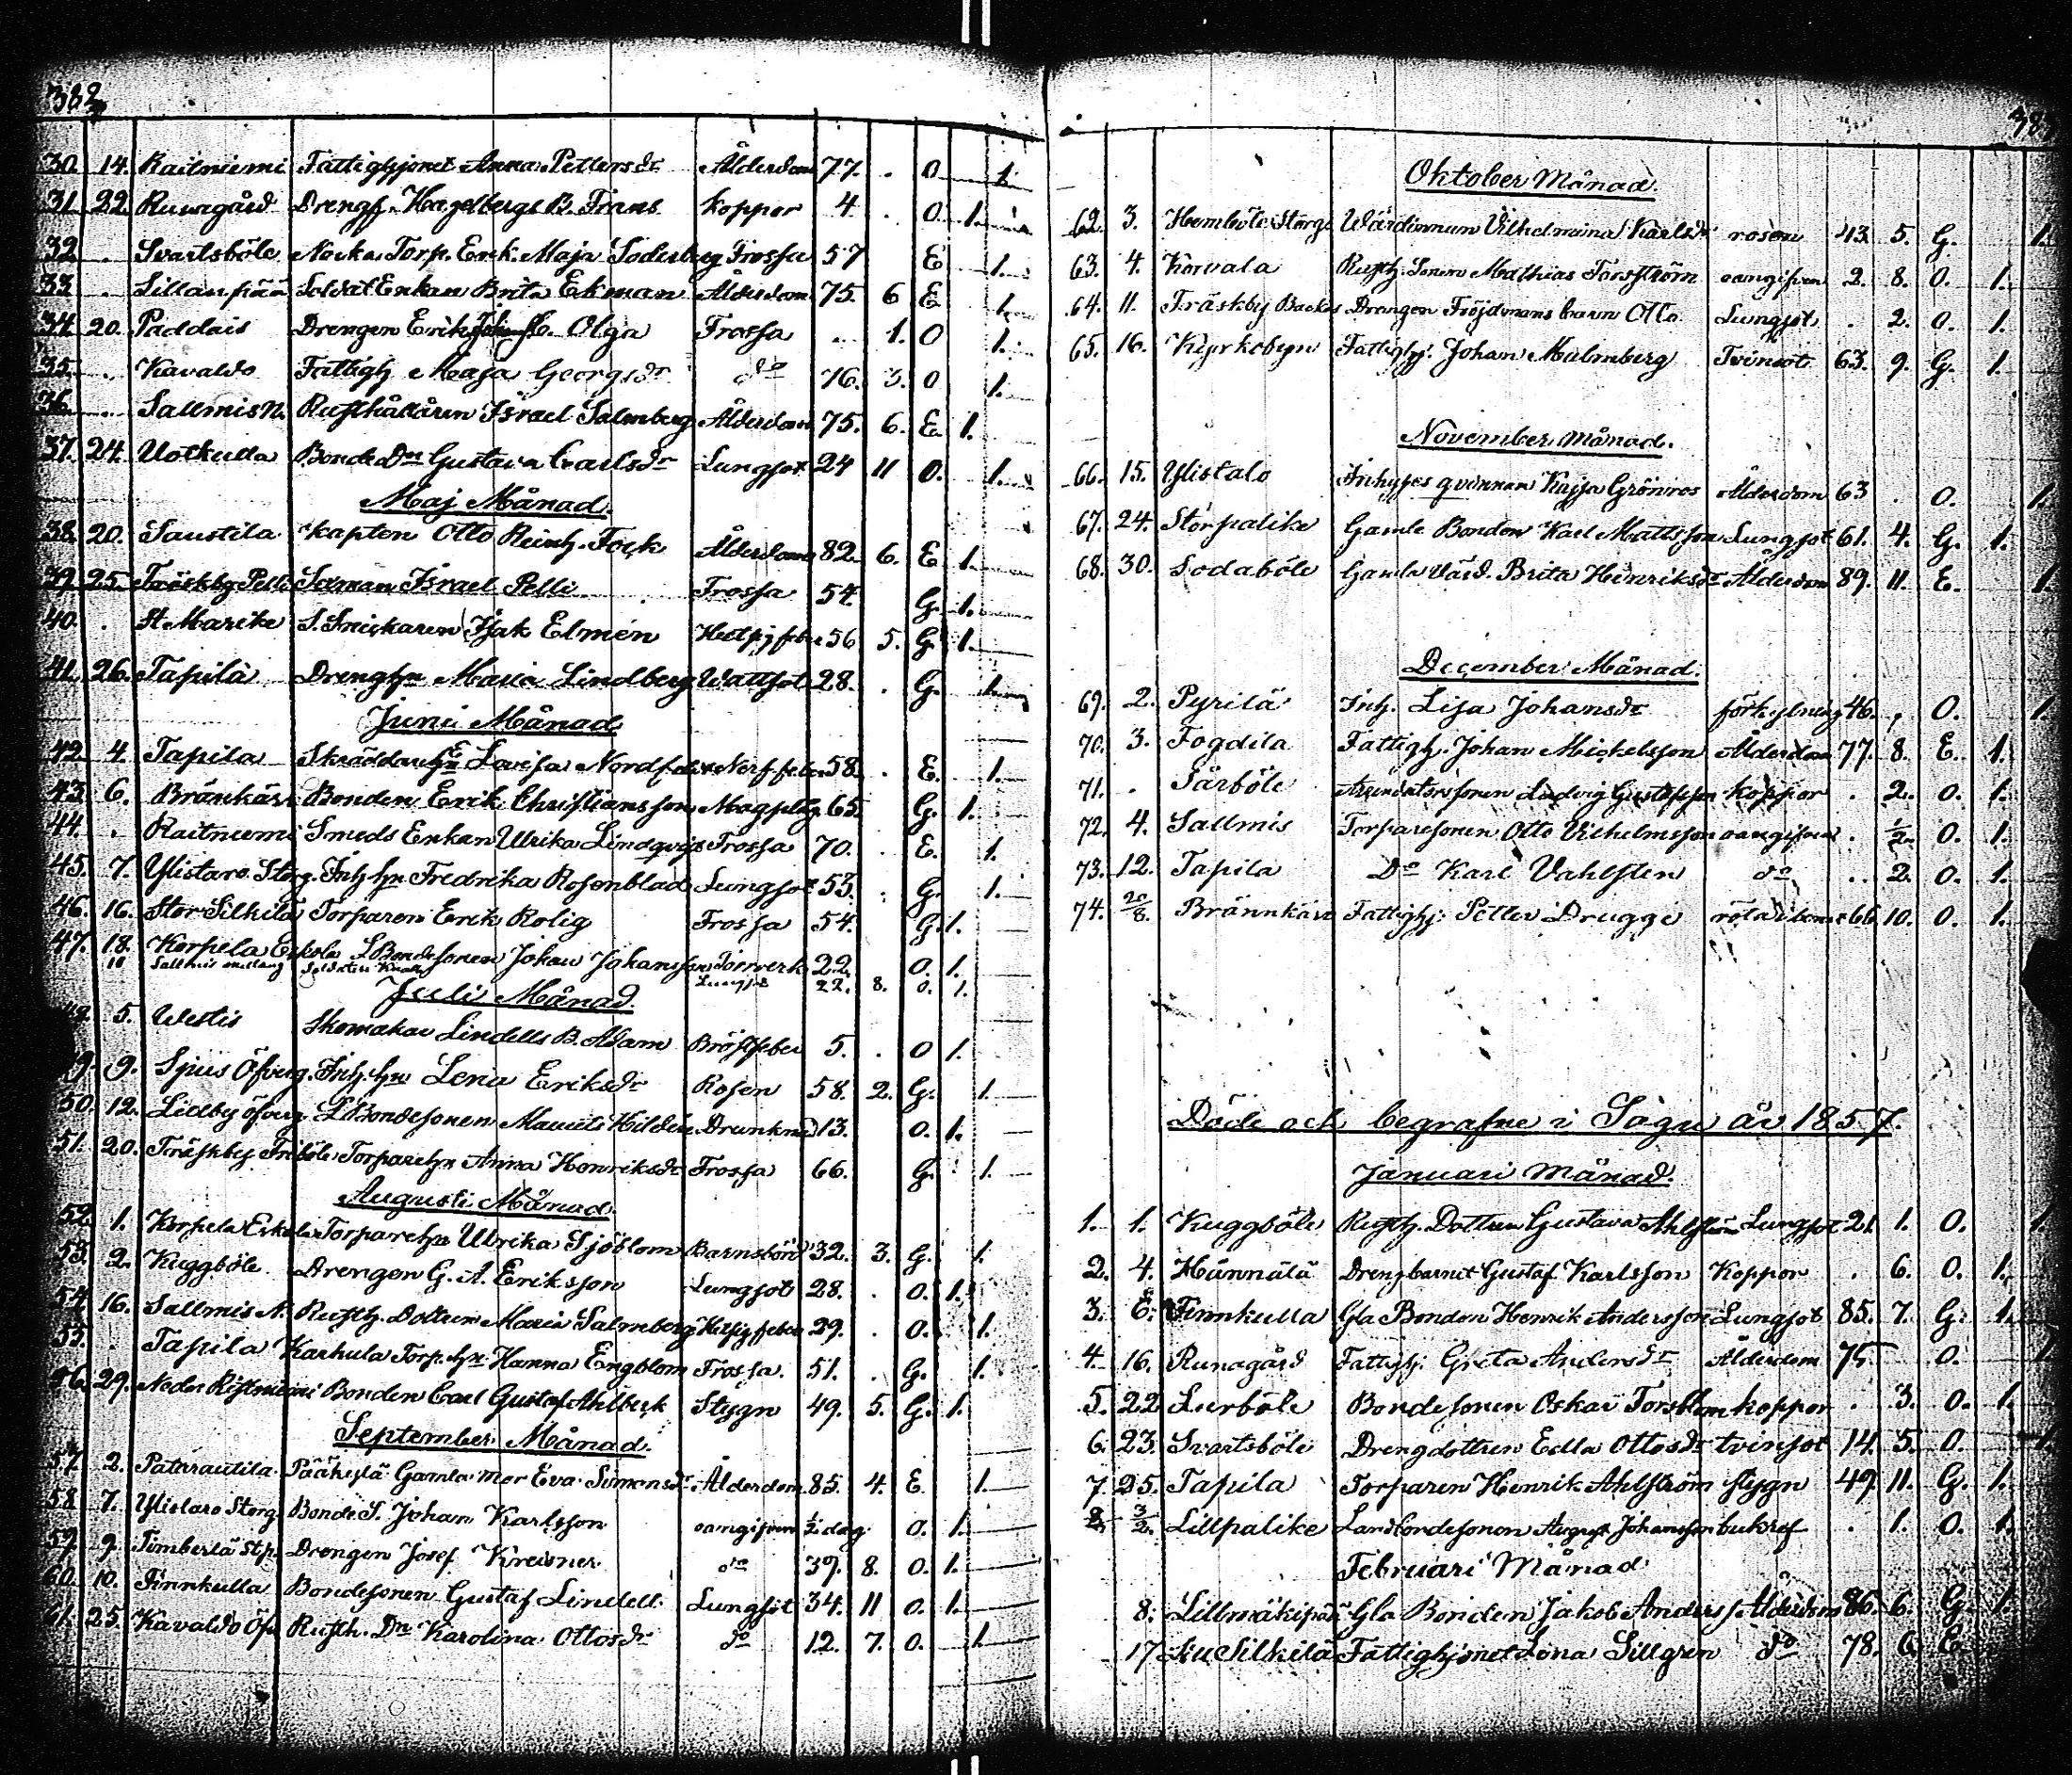 382
30. 14. Raitniemi Fattighjonet Anna Pettersdr Ålderdom 77. . O 1.
31. 22. Runagård Drengs. Hagelbergs B. Frans koppor 4 . O. 1.
32. . Svartsböle Enk. Maja Söderberg Frossa 57 E 1.
33. . Lillanpää Soldat Enkan Brita Ekman Ålderdom 75. 6 E 1.
34. 20. Paddais Drengen Erik Olga Frossa .. 1. O 1.
35. . Kavaldo Fattigh. Maja Georgsdr do 76. 3. O 1.
36. . Sallmis N. Rusthållaren Israel Salmberg Ålderdom 75. 6. E. 1.
37. 24. Uotkulla Bonde Dn Gustava Carlsdr Lungsot 24 11 O. 1.
Maj Månad.
38. 20. Saustila Kapten Otto Reinh. Fock Ålderdom 82. 6. E 1.
39. 25. Träskby Pelli Israel Pelli Frossa 54. G. 1.
40. . St. Marike S. Snickaren Isak Elmén Hetsigfeber 56 5. G. 1.
41. 26. Tapila Drenghn Maria Lindberg Wattsot 28. . G. 1.
Juni Månad
42. 4. Tapila Skräddarhn Lovisa Nerffeber 58. . E. 1.
43. 6. Bränkärr Bonden Erik Christiansson 65. G. 1.
44. . Raitniemi Smeds Enkan Ulrika Lindqvist Frossa 70. . E. 1.
45. 7. Ylistaro Storg. Inh. hn Fredrika Rosenblad Lungsot 53. . G. 1.
46. 16. Stor Silkilä Torparen Erik Rolig Frossa 54. G. 1.
47. 18. Korpela Eskola S Bondesonen Johan Johansson 22. O. 1.
10 Sallmis Soldaten Lungsot 22. 8. O. 1.
Juli Månad.
5. Westis Skomakar Lindells B. Adam Bröstfeber 5. . O 1.
49. 9. Spiis Öfverg. Inh. hn Lena Eriksdr Rosen 58. 2. G. 1.
50. 12. Lielby Öfverg. L Bondesonen Maurits Hildén Drunknad 13. O. 1.
51. 20. Träskby Friböle Torparehn Anna Henriksdr Frossa 66. G. 1.
Augusti Månad.
52. 1. Korpela Eskola Torparehn Ulrika Sjöblom Barnsbörd 32. 3. G. 1.
53. 2. Kuggböle Drengen G. A. Eriksson Lungsot 28. . O. 1.
54. 16. Sallmis N. Rusth. Dottren Maria Salmberg Hetsigfeber 29. . O. 1.
55. . Tapila Karhula Torp. hn Hanna Engblom Frossa. 51. . G. 1.
56. 29. Neder Ristniemi Bonden Carl Gustaf Ahlbeck Stygn 49. 5. G. 1.
September Månad.
57. 2. Patarautila Pääkylä Gamla mor Eva Simonsdr Ålderdom 85. 4. E. 1.
58. 7. Ylistaro Storg Bonde S. Johan Karlsson oangifven ½ dag O. 1.
59. 9. Timberlä Drengen Josef Kreisner do 39. 8. O. 1.
60. 10. Finnkulla Bondesonen Gustaf Lindell Lungsot 34. 11 O. 1.
61. 25. Kavaldo Öfv Rusth. Dn Karolina Ottosdr do 12. 7. O. 1.
Oktober Månad.
62. 3. Hemböle Storg. Wärdinnan Vilhelmina Karlsdr rosen 43. 5. G. 1.
63. 4. Korvala Rusth. Sonen Mathias Forsström oangifven 2. 8. O. 1.
64. 11. Träskby Backas Drengen Fröjdmans barn Otto Lungsot . 2. O. 1.
65. 16. Kyrkobyn Fattighj. Johan Malmberg Tvinsot 63. 9. G. 1.
November månad.
66. 15. Ylistalo Inhyses qvinnan Kajsa Grönroos Ålderdom 63 . O. 1.
67. 24. Storpalike Gamle Bonden Karl Mattsson Lungsot 61. 4. G. 1.
68. 30. Sodaböle Gamla Värd. Brita Henriksdr Ålderdom 89. 11. E. 1.
December Månad.
69. 2. Pyrilä Inh. Lisa Johansdr förkylning 46. . O. 1.
70. 3. Fogdila Fattigh. Johan Michelsson Ålderdom 77. 8. E. 1.
71. . Särböle Arrendatorssonen Ludvig Gustafsson koppor . 2. O. 1.
72. 4. Sallmis Torparesonen Otto Vilhelmsson oangifven . ½ O. 1.
73. 12. Tapila Do Karl Vahlsten do .. 2. O. 1.
74. 20/8. Brännkärr Fattighj. Petter Drugge 66 10. O. 1.
Döde och begrafne i Sagu år 1857.
Januari Månad.
1. 1. Kuggböle Rusth. Dottren Gustava Ahlström Lungsot 21. 1. O. 1.
2. 4. Hännälä Drengbarnet Gustaf Karlsson Koppor . 6. O. 1.
3. 6. Finnkulla Gla Bonden Henrik Andersson Lungsot 85. 7. G. 1.
4. 16. Runagård Fattighj. Greta Andersdr Ålderdom 75. O. 1.
5. 22 Lurböle Bondesonen Oskar Forsblom koppor . 3. O. 1.
6. 23. Svartsböle Drengdottren Edla Ottosdr tvinsot 14. 5. O. 1.
7. 25. Tapila Torparen Henrik Ahlström stygn 49. 11. G. 1.
8. 3/2. Lillpalike Landbondesonen August Johansson bukref . 1. O. 1.
Februari Månad
8. Lillmäkipää Gla Bonden Jakob Anderss. Ålderdom 86. 6. G. 1.
17. Silkilä Fattighjonet Lena Sillgren do 78. 6. E.